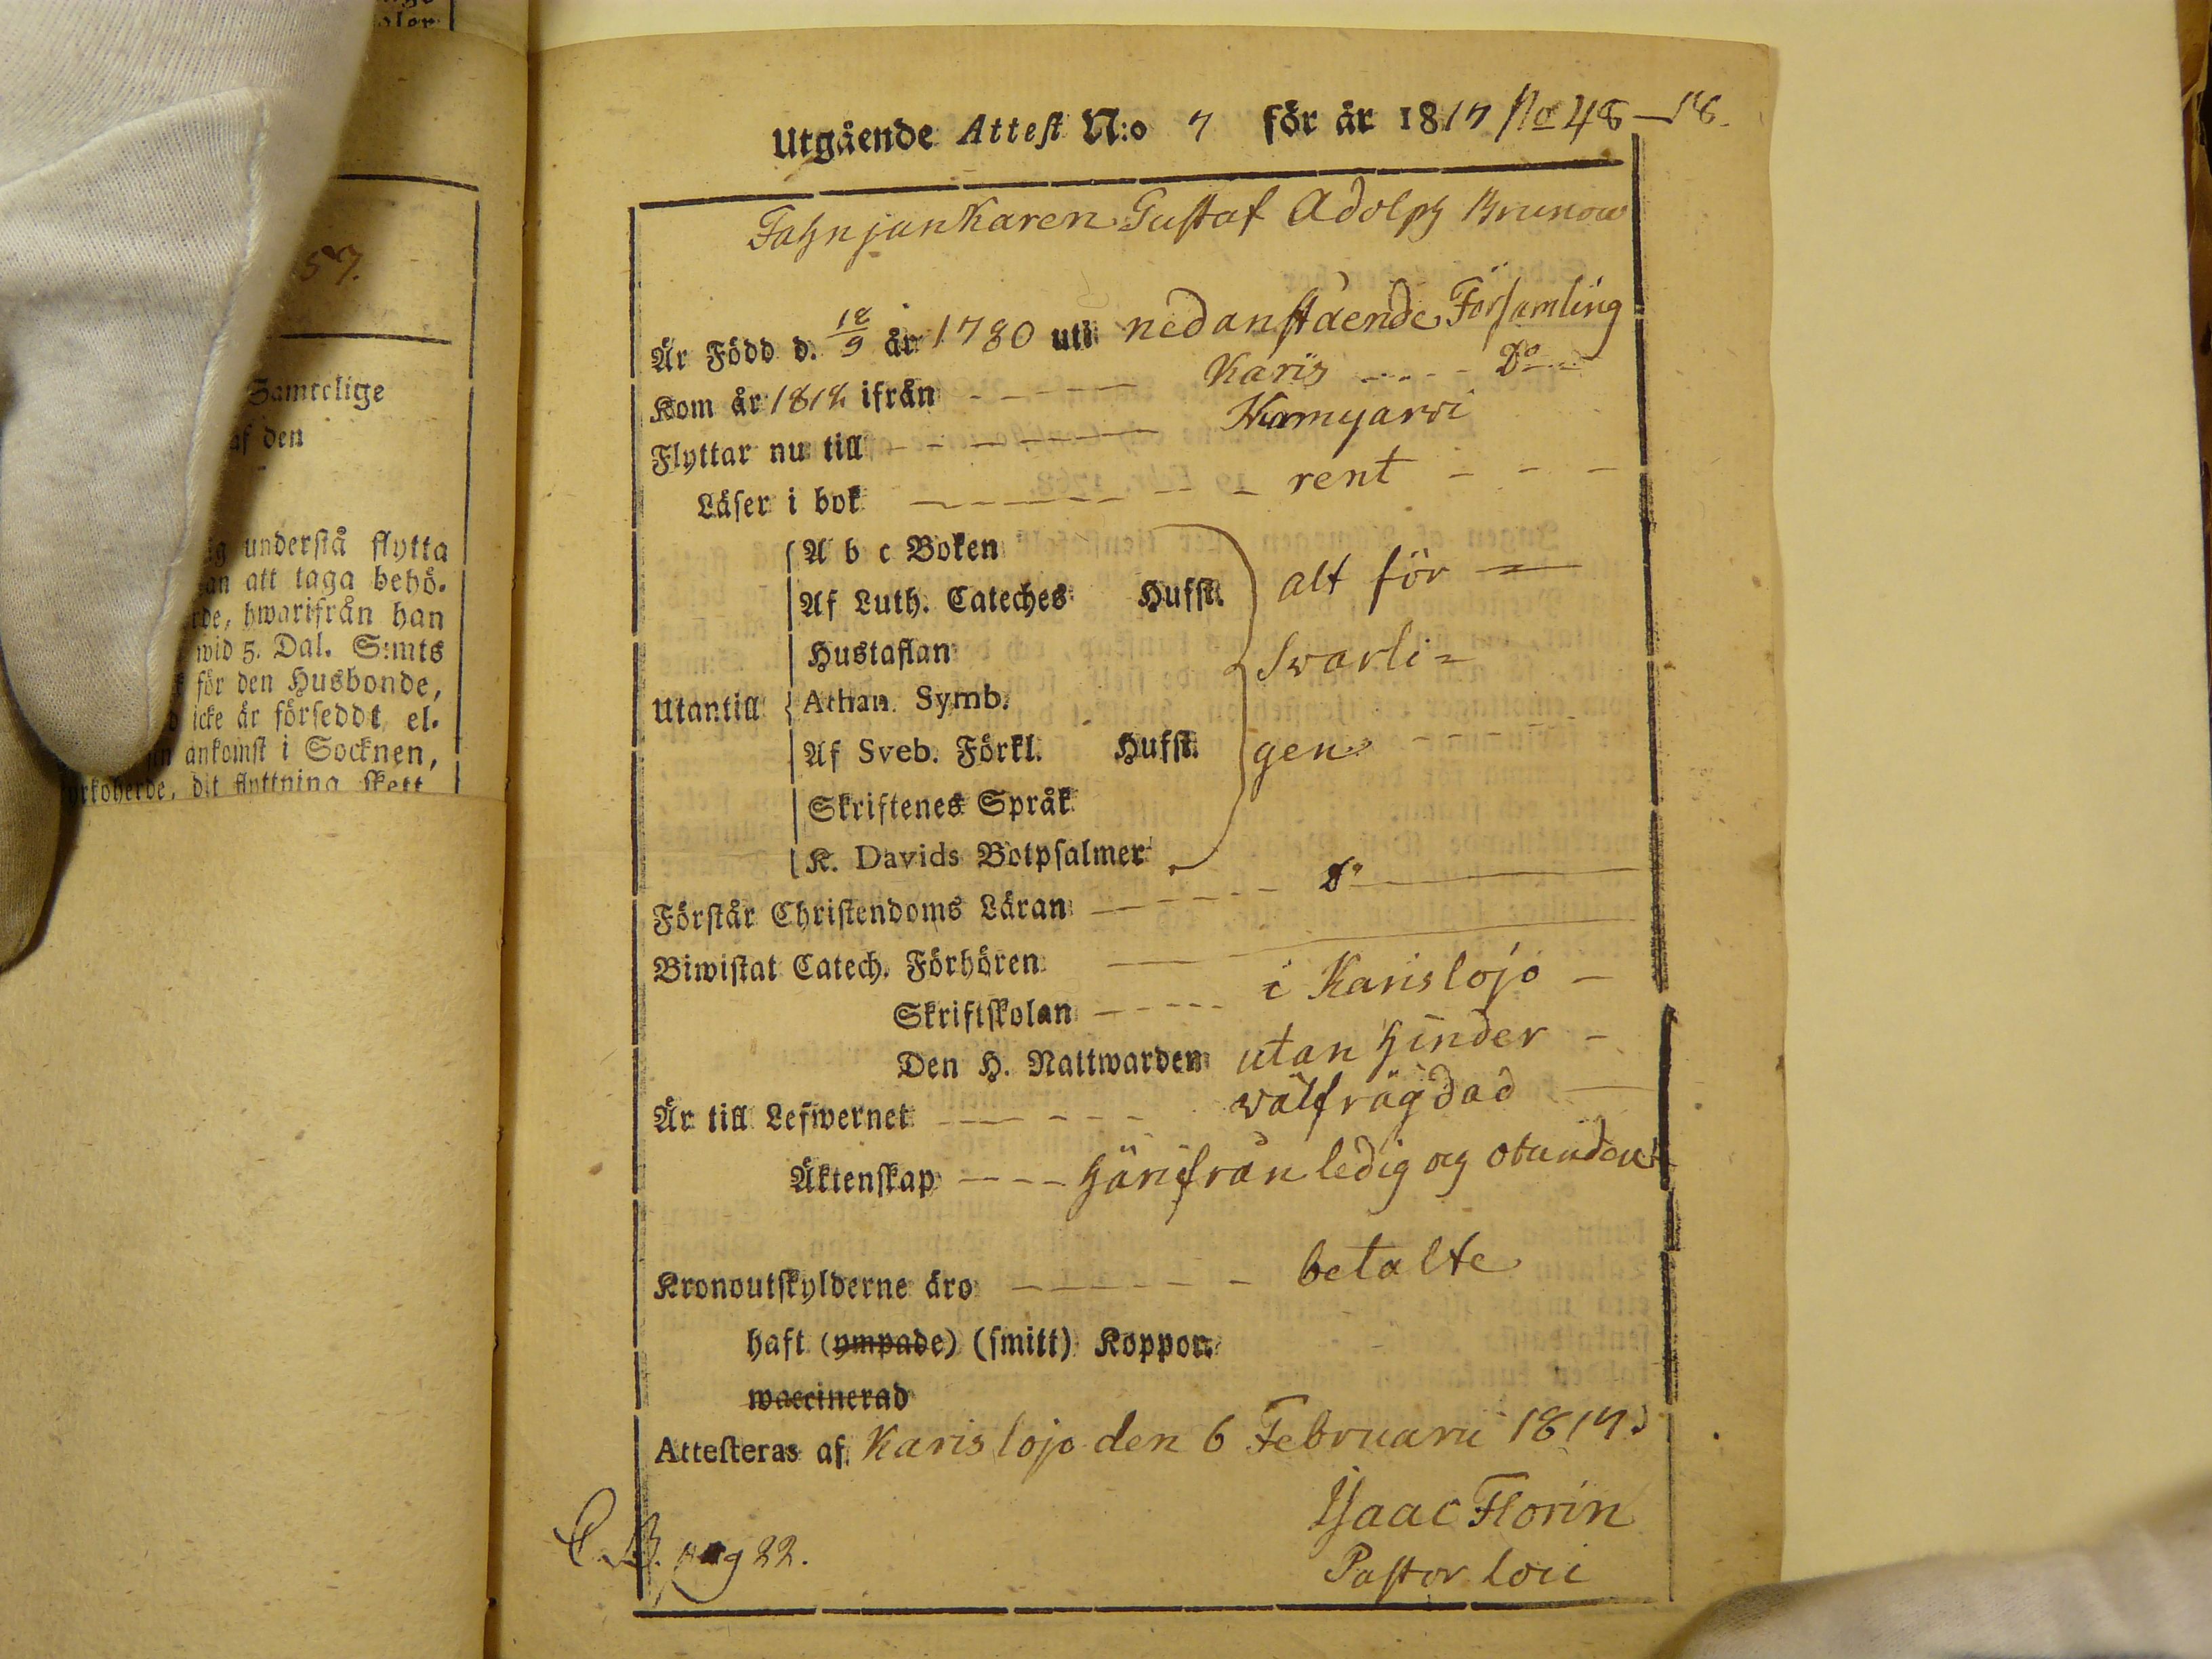 aler
57.
Samtelige
af den
ig understå flytta
an att taga behö-
rde, hwarifrån han
wid 5. Dal. S:mts
för den Husbonde,
d icke är försedd, el-
sin ankomst i Socknen,
yrkoherde, dit flyttning skett
Utgående Attest N:o 7 för år 1817 No 48
Fahnjunkaren Gustaf Adolph Brunow
Är Född d. 18/9 år 1780 uti nedanstående Församling
Kom år 1812 ifrån Karis Do
Flyttar nu till
Läser i bok rent
A b c Boken
Af Luth. Cateches Hufst. alt för =
Hustaflan svarli=
Utantill Athan. Symb.
Af Sveb. Förkl. Hufst. gen
Skriftenes Språk
K. Davids Botpsalmer
Förstår Christendoms Läran Do
Biwistat Catech. Förhören
Skriftskolan i Karislojo
Den H. Nattwarden utan hinder
Är till Lefwernet välfrägdad
Äktenskap härifrån ledig och obunden
Kronoutskylderne äro betalte
haft (ympade) (smitt) Koppor.
waccinerad
Attesteras af Karislojo den 6 Februarii 1817
Isaac Florin
C.B. pag 22.
Pastor loci